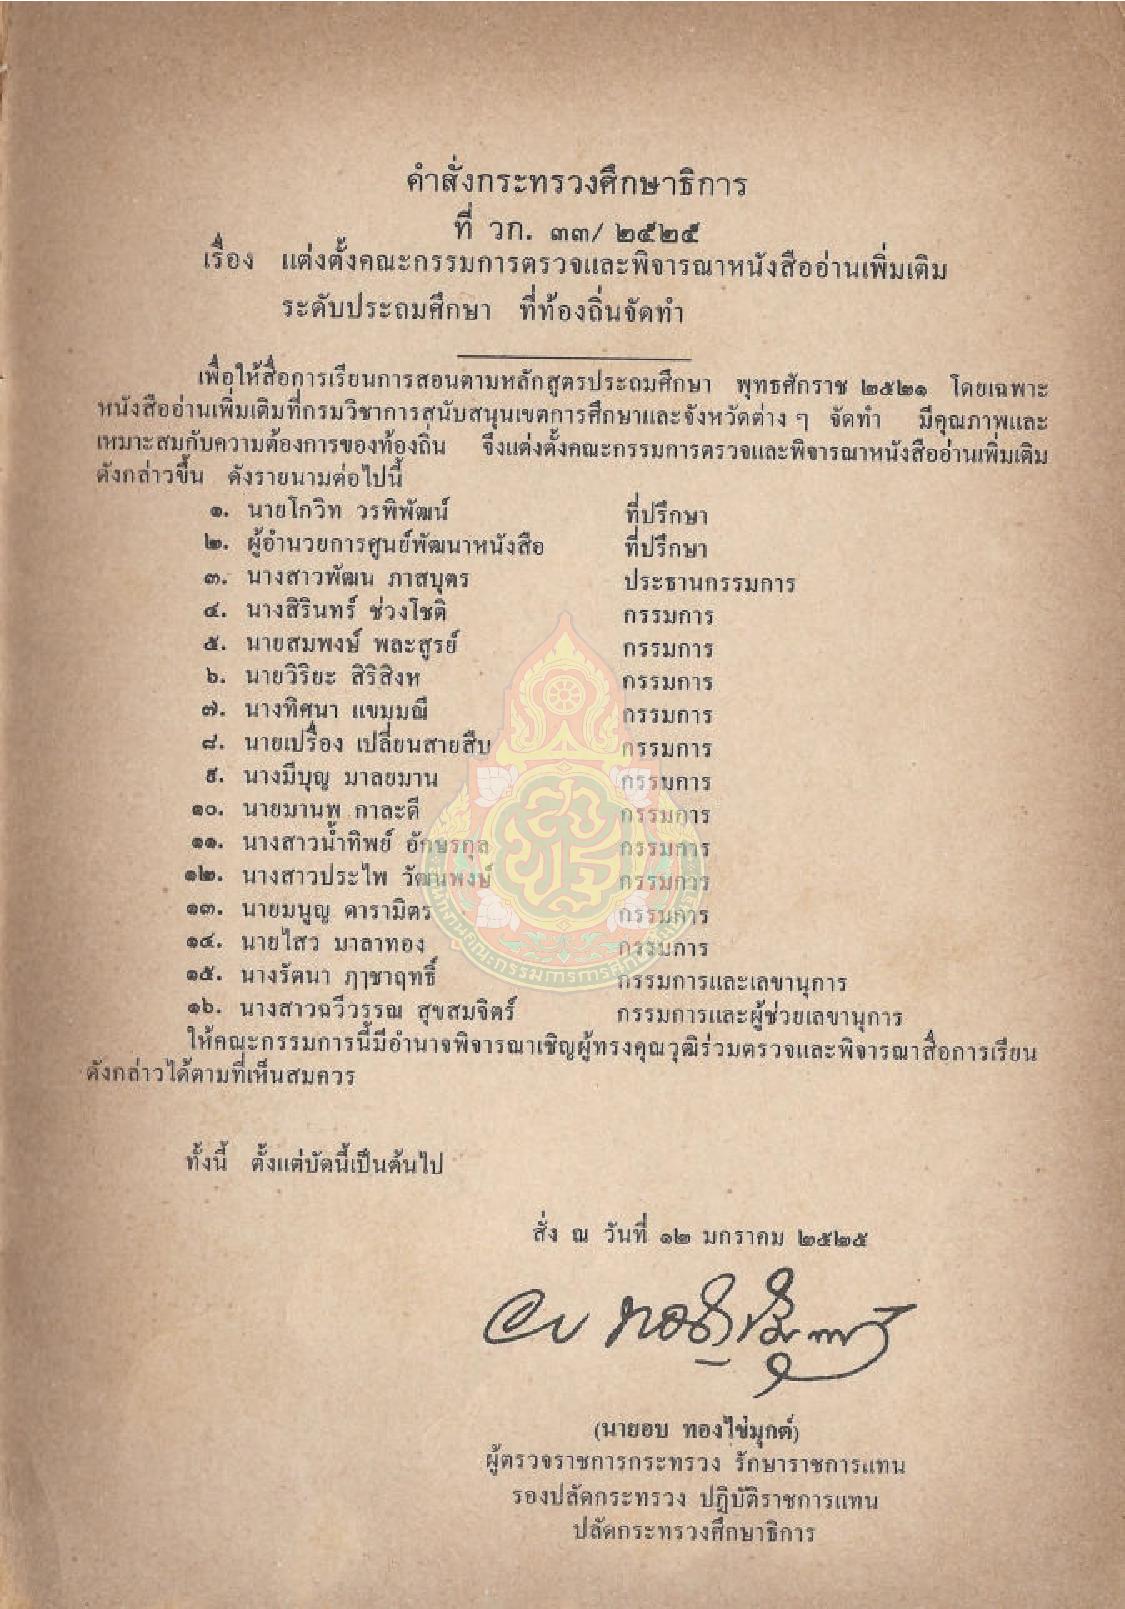 คำสั่งกระทรวงศึกษาธิการ
ที่ วก. ๓๓/ ๒๕๒๕
เรื่อง แต่งตั้งคณะกรรมการตรวจและพิจารณาหนังสืออ่านเพิ่มเติม
ระดับประถมศึกษา ที่ท้องถิ่นจัดทำ
เพื่อให้สื่อการเรียนการสอนตามหลักสูตรประถมศึกษา พุทธศักราช ๒๕๒๑ โดยเฉพาะ
หนังสืออ่านเพิ่มเติมที่กรมวิชาการสนับสนุนเขตการศึกษาและจังหวัดต่าง ๆ จัดทำ มีคุณภาพและ
เหมาะสมกับความต้องการของท้องถิ่น จึงแต่งตั้งคณะกรรมการตรวจและพิจารณาหนังสืออ่านเพิ่มเติม
ดังกล่าวขึ้น ดังรายนามต่อไปนี้
๑. นายโกวิท วรพิพัฒน์ ที่ปรึกษา
๒. ผู้อำนวยการศูนย์พัฒนาหนังสือ ที่ปรึกษา
๓. นางสาวพัฒน ภาสบุตร ประธานกรรมการ
๔. นางสิรินทร์ ช่วงโชติ กรรมการ
๕. นายสมพงษ์ พละสูรย์ กรรมการ
๖. นายวิริยะ สิริสิงห กรรมการ
๗. นางทิศนา แขมมณี กรรมการ
๘. นายเปรื่อง เปลี่ยนสายสืบ กรรมการ
๙. นางมีบุญ มาลยมาน กรรมการ
๑๐. นายมานพ กาละดี กรรมการ
๑๑. นางสาวน้ำทิพย์ อักษรกุล กรรมการ
๑๒. นางสาวประไพ วัฒนพงษ์ กรรมการ
๑๓. นายมนูญ ดารามิตร กรรมการ
๑๔. นายไสว มาลาทอง กรรมการ
๑๕. นางรัตนา ฦาชาฤทธิ์ กรรมการและเลขานุการ
๑๖. นางสาวฉวีวรรณ สุขสมจิตร์ กรรมการและผู้ช่วยเลขานุการ
ให้คณะกรรมการนี้มีอำนาจพิจารณาเชิญผู้ทรงคุณวุฒิร่วมตรวจและพิจารณาสื่อการเรียน
ดังกล่าวได้ตามที่เห็นสมควร
ทั้งนี้ ตั้งแต่บัดนี้เป็นต้นไป
สั่ง ณ วันที่ ๑๒ มกราคม ๒๕๒๕
(นายอบ ทองไข่มุกต์)
ผู้ตรวจราชการกระทรวง รักษาราชการแทน
รองปลัดกระทรวง ปฏิบัติราชการแทน
ปลัดกระทรวงศึกษาธิการ